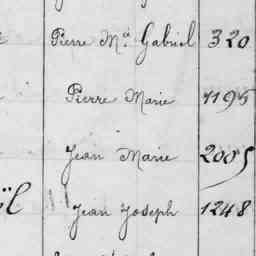 Pierre Mie Gabriel 320
Pierre Marie 1195
Jean Marie 2005
Jean Joseph 1248